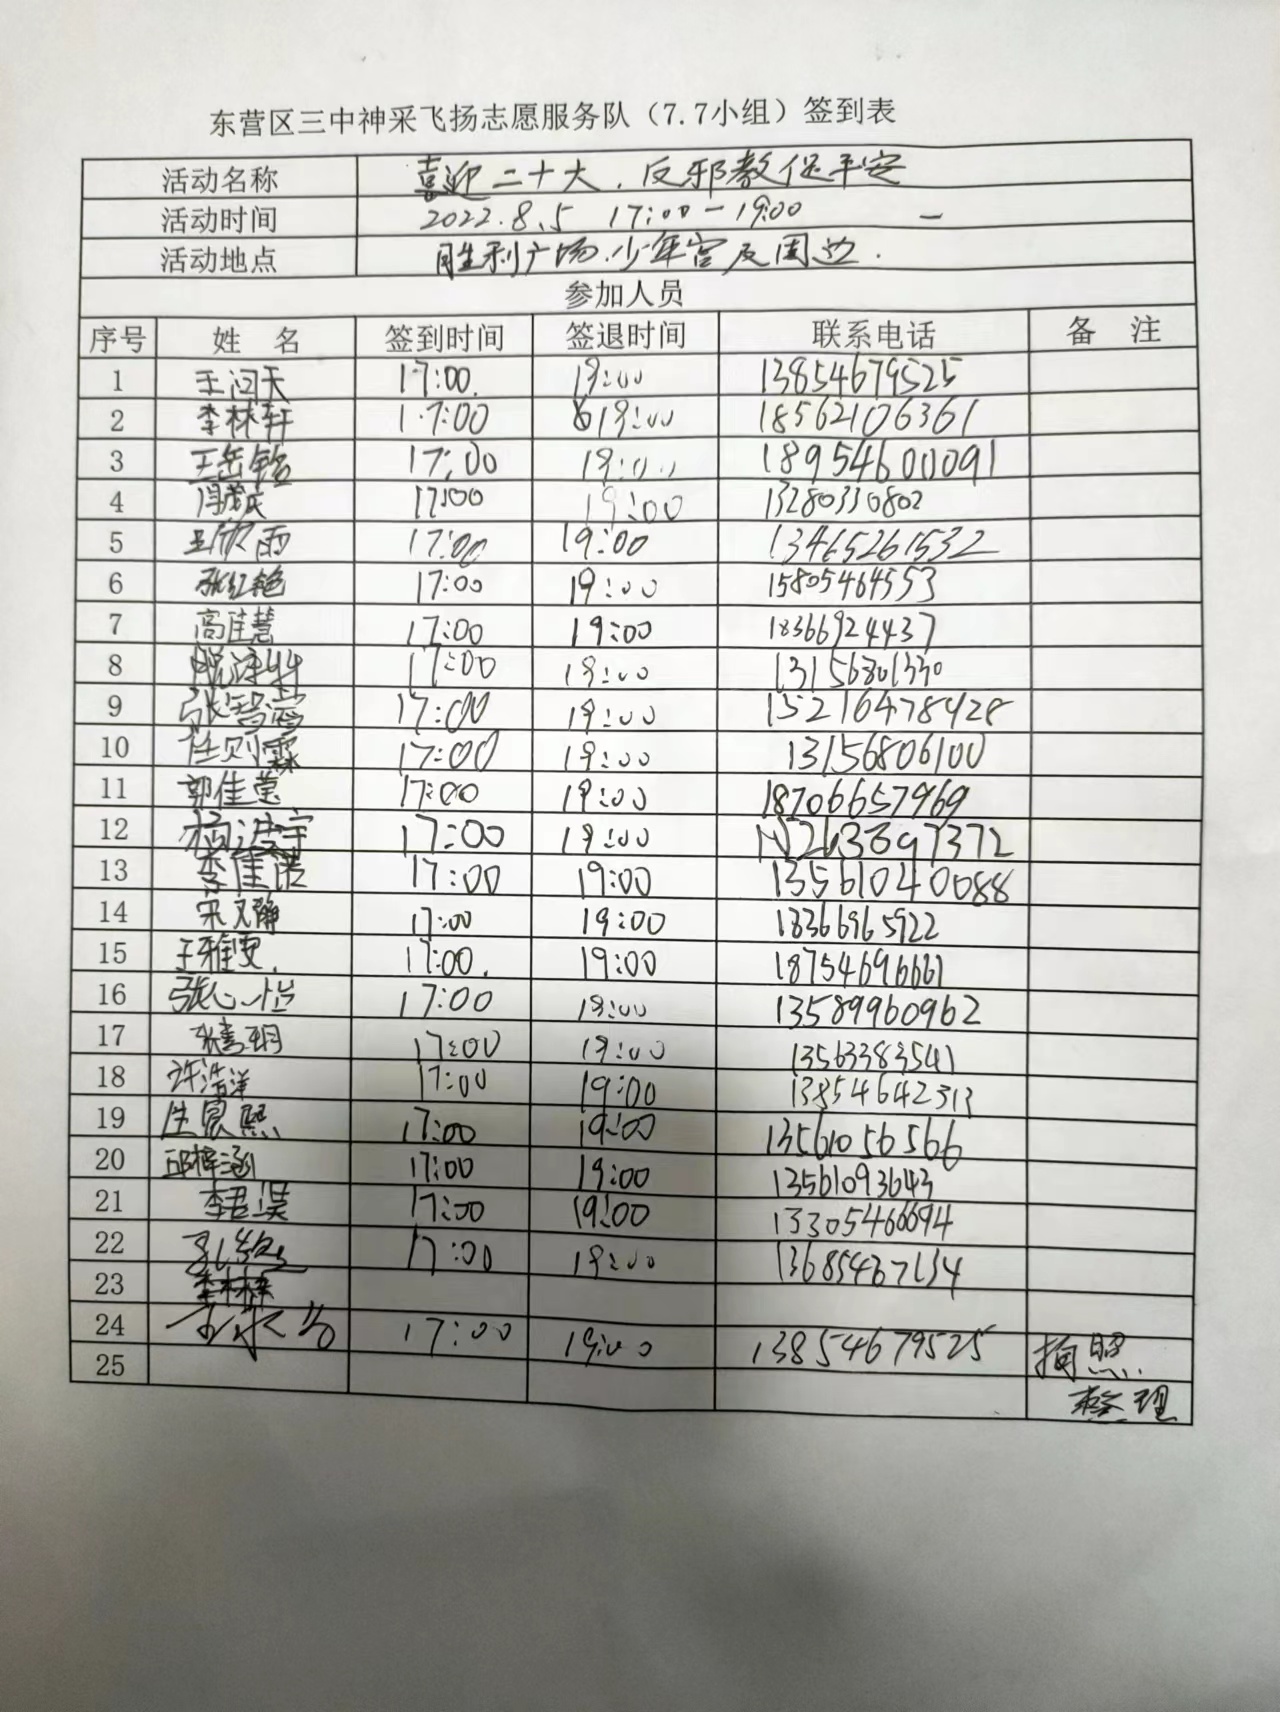 东营区三中神采飞扬志愿服务队（7.7小组）签到表
活动名称 喜迎二十大、反邪教促平安
活动时间 2022.8.5 17:00-19:00
活动地点 胜利广场、少年宫及周边.
参加人员
序号 姓 名 签到时间 签退时间 联系电话 备 注
1 王问天 17:00. 19:00 13854679525
2 李林轩 17:00 19:00 18562106361
3 王岳铭 17:00 19:00 18954600091
4 17:00 19:00 13280330802
5 17:00 19:00 13465261532
6 张红艳 17:00 19:00 15805464553
7 高佳慧 17:00 19:00 18366924437
8 17:00 19:00 13156801330
9 17:00 19:00 15216478428
10 任则霖 17:00 19:00 13156806100
11 郭佳莹 17:00 19:00 18706657969
12 17:00 19:00
13 李佳诺 17:00 19:00 13561040088
14 宋文静 17:00 19:00 18366965922
15 王雅雯. 17:00. 19:00 18754696661
16 张心怡 17:00 19:00 13589960962
17 17:00 19:00 13563383541
18 许浩洋 17:00 19:00 13854642313
19 17:00 19:00 13561056566
20 邱梓涵 17:00 19:00 13561093643
21 李君昊 17:00 19:00 13305466694
22 17:00 19:00
23
24 17:00 19:00 13854679525 拍照
25 整理